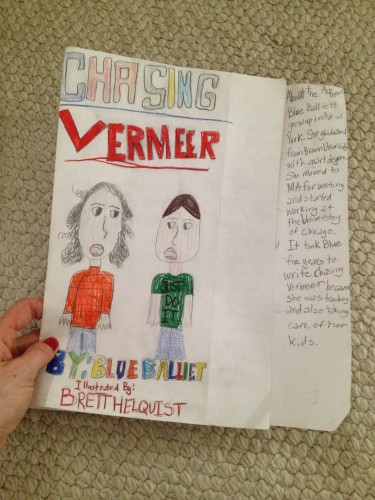 CHASING
VERMEER
JUST
DO
IT
BY: BLUE BALLIET
Illustrated By:
BRETT HELQUIST
About the Author
Blue Balliett
grew up in New
York. She graduated
from Brown University
with an art degree.
She moved to
MA for writing
and started
working at
the University
of Chicago.
It took Blue
five years to
write Chasing
Vermeer because
she was teaching
and also taking
care of her
kids.